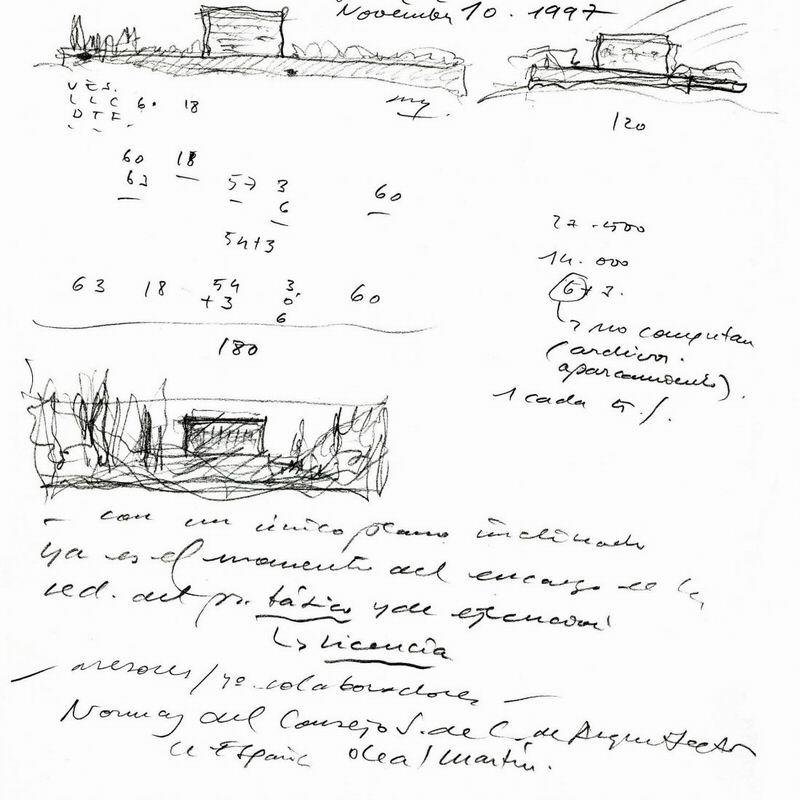 November 10. 1997
120
V E S.
L L C 6. 18
D T F.
60 18
63 57 3 60
6
54+3
63 18 54 3. 60
+3 0
6
180
27.500
14.000
6+3.
no computan
(archivos.
aparcamiento).
1 cada 5./.
- con un único plano inclinado
ya es el momento del encargo de la
red. del pr. básico y de ejecución
licencia
- asesores / yo. colaboradores -
Normas del Consejo S. de C. de Arquitectos
de España Olea / Martín.